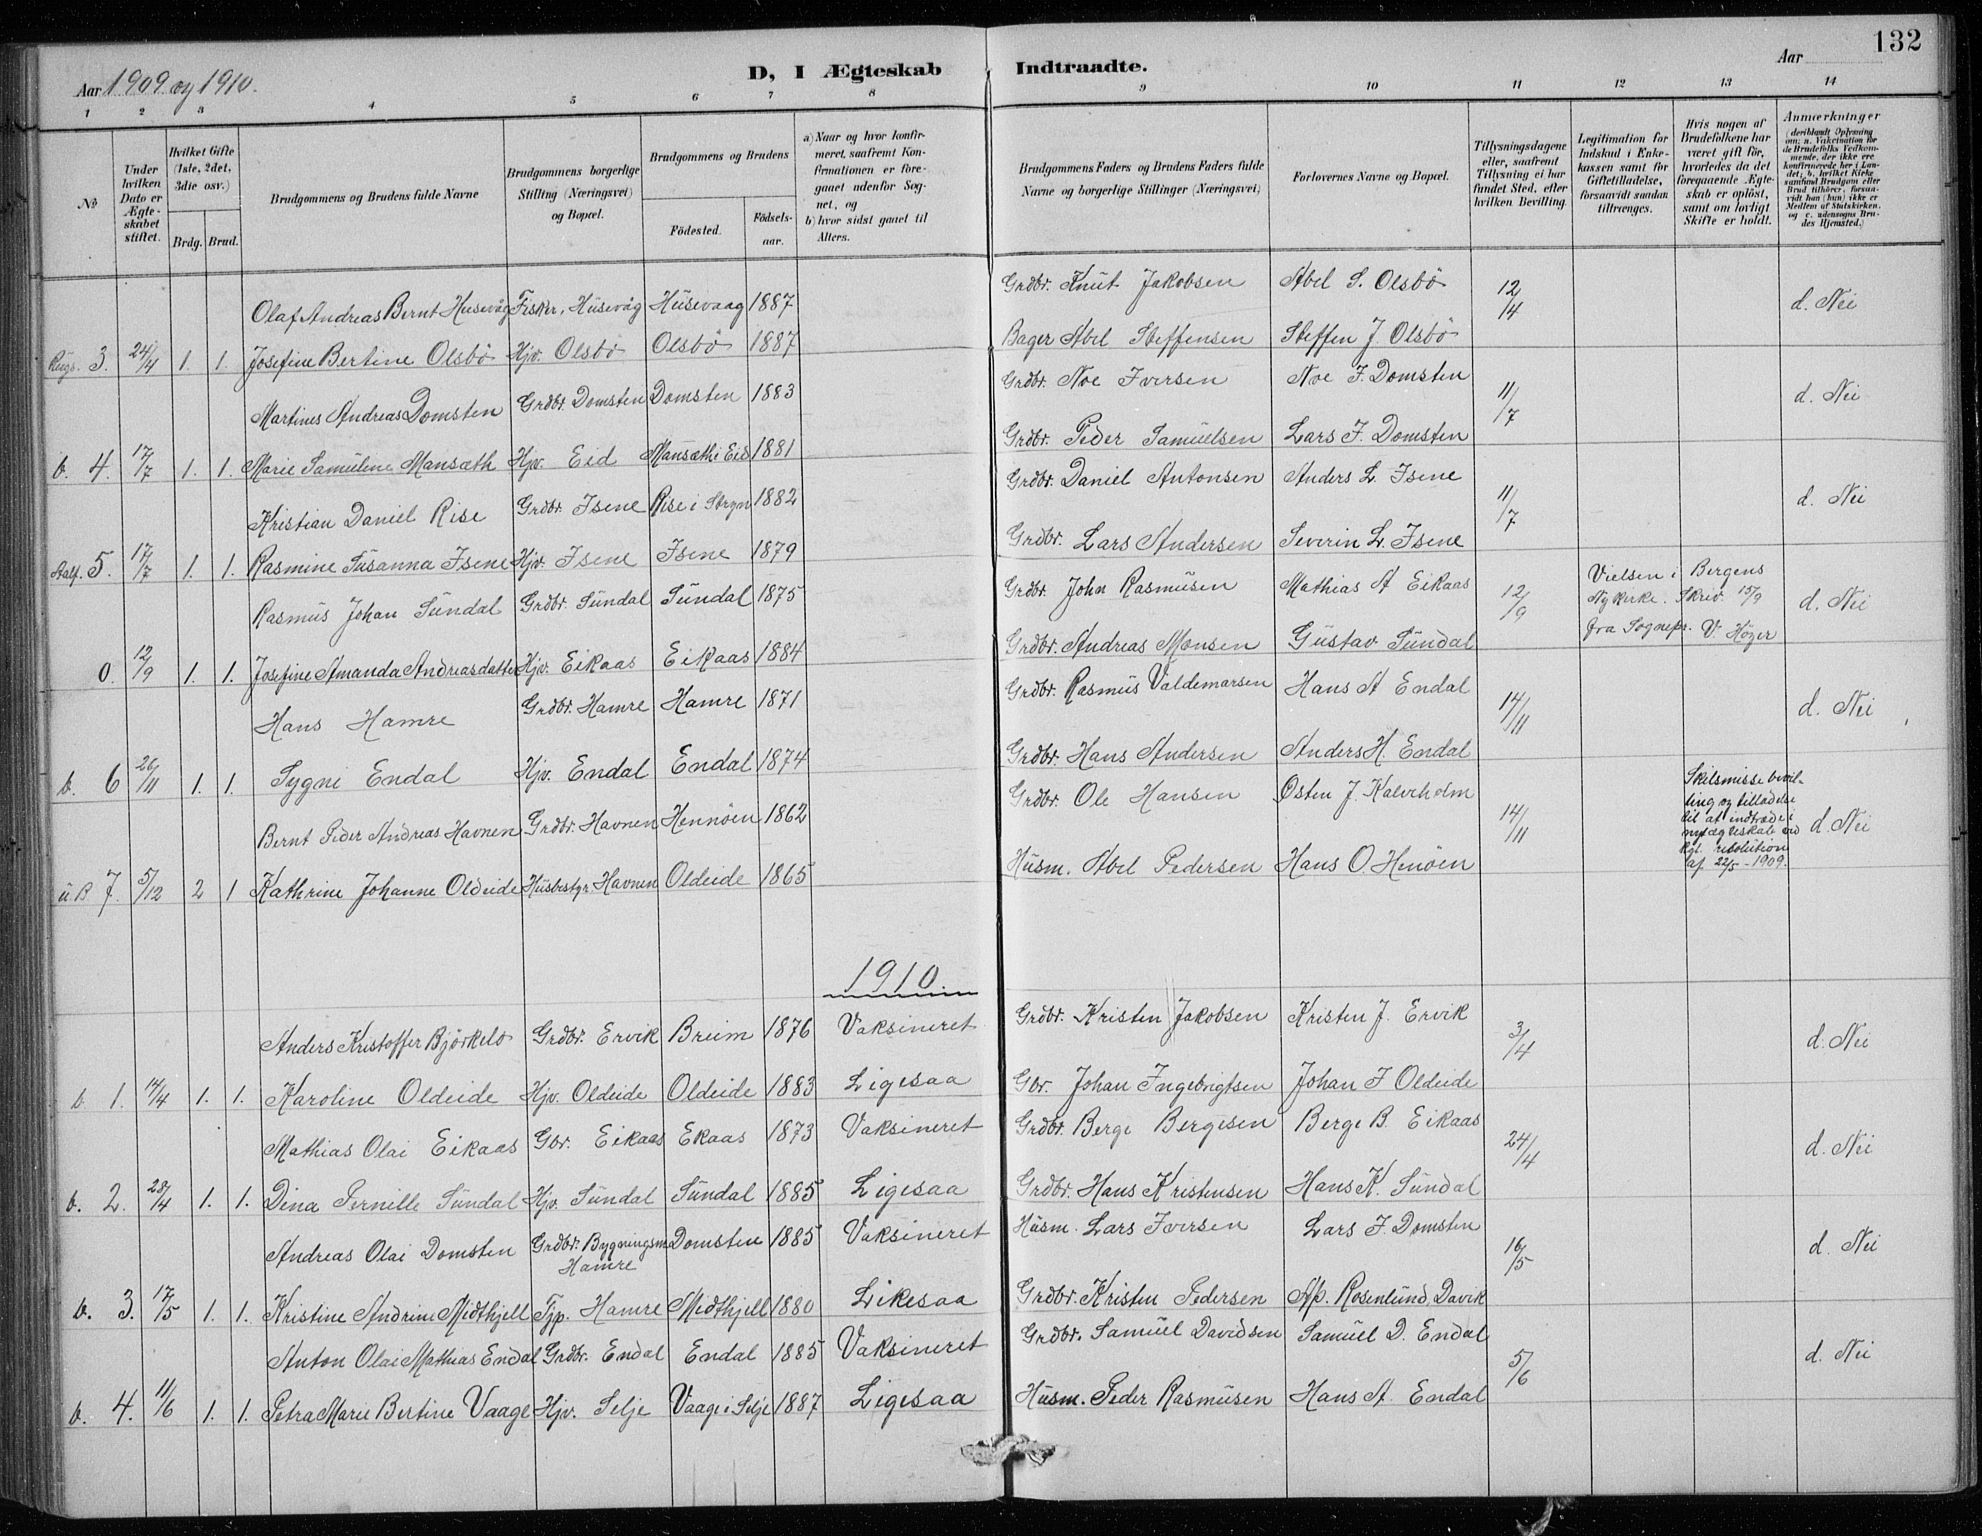 132
Aar 1909 og 1910.
D, I Ægteskab Indtraadte.
Aar
1 2 3 4 5 6 7 8 9 10 11 12 13 14
No
Under hvilken Dato er Ægteskabet stiftet.
Hvilket Gifte (1ste, 2det, 3die osv.)
Brdg. Brud.
Brudgommens og Brudens fulde Navne
Brudgommens borgerlige Stilling (Næringsvei) og Bopæl.
Brudgommens og Brudens
Fødested.
Fødselsaar.
a) Naar og hvor konfirmeret, saafremt Konfirmationen er foregaaet udenfor Sognet, og
b) hvor sidst gaaet til Alters.
Brudgommens Faders og Brudens Faders fulde Navne og borgerlige Stillinger (Næringsvei)
Forlovernes Navne og Bopæl.
Tillysningsdagene eller, saafremt Tillysning ei har fundet Sted, efter hvilken Bevilling.
Legitimation for Indskud i Enkekassen samt for Giftetilladelse, forsaavidt saadan tiltrænges.
Hvis nogen af Brudefolkene har været gift før, hvorledes da det foregaaende Ægteskab er opløst, samt om lovligt Skifte er holdt.
Anmærkninger (deriblandt Oplysning om: a. Vakcination for de Brudefolks Vedkommende, der ikke ere konfirmerede her i Landet; b. hvilket Kirkesamfund Brudgom eller Brud tilhører, forsaavidt han (hun) ikke er Medlem af Statskirken, og c. udensogns Brudes Hjemsted.)
Olaf Andreas Bernt Husevåg Fisker, Husevåg Husevaag 1887 Grdbr. Knut Jakobsen Abel S. Olsbø 12/4 d. Nei
Rugs. 3. 24/4 1. 1. Josefine Bertine Olsbø Hjv. Olsbø Olsbø 1887 Bager Abel Steffensen Steffen J. Olsbø
Martines Andreas Domsten Grdbr. Domsten Domsten 1883 Grdbr. Noe Iversen Noe I. Domsten 11/7 d. Nei
b. 4. 17/7 1. 1. Marie Samuline Mansæth Hjv. Eid Mansæth i Eid 1881 Grdbr. Peder Samuelsen Lars I. Domsten
Kristian Daniel Rise Grdbr. Isene Rise i Stryn 1882 Grdbr. Daniel Antonsen Anders L. Isene 11/7 d. Nei
Aalf. 5. 17/7 1. 1. Rasmine Susanna Isene Hjv. Isene Isene 1879 Grdbr. Lars Andersen Severin L. Isene
Rasmus Johan Sundal Grdbr. Sundal Sundal 1875 Grdbr. John Rasmusen Mathias A Eikaas 12/9 Vielsen i Bergens Nykirke. Skriv. 15/9 fra Sognepr. V. Höger d. Nei
0. 12/9 1. 1. Josefine Amanda Andreasdatter Hjv. Eikaas Eikaas 1884 Grdbr. Andreas Monsen Gustav Sundal
Hans Hamre Grdbr. Hamre Hamre 1871 Grdbr. Rasmus Valdemarsen Hans A Endal 14/11 d. Nei
b. 6 26/11 1. 1. Sygni Endal Hjv. Endal Endal 1874 Grdbr. Hans Andersen Anders H. Endal
Bernt Peder Andreas Havnen Grdbr. Havnen Hennöen 1862 Grdbr. Ole Hansen Østen J. Kalveholm 14/11 Skilsmissebevilling og tilladelse til at indtræde i nyt ægteskab ved kgl. resolution af 22/5-1909. d. Nei
u. B 7. 5/12 2 1 Kathrine Johanne Oldeide Husbestyr. Havnen Oldeide 1865 Husm. Abel Pedersen Hans O. Henöen
1910.
Anders Kristoffer Björkelo Grdbr. Ervik Breim 1876 Vaksineret Grdbr. Kristen Jakobsen Kristen J. Ervik 3/4 d. Nei
b. 1. 14/4 1. 1. Karoline Oldeide Hjv. Oldeide Oldeide 1883 Ligesaa Gbr. Johan Ingebrigtsen Johan I Oldeide
Mathias Olai Eikaas Gbr. Eikaas Ekaas 1873 Vaksineret Grdbr. Berge Bergesen Berge B. Eikaas 24/4 d. Nei
b. 2. 28/4 1. 1. Dina Pernille Sundal Hjv. Sundal Sundal 1885 Ligesaa Grdbr. Hans Kristensen Hans K. Sundal
Andreas Olai Domsten Grdbr. Bygningsm. Hamre Domsten 1885 Vaksineret Husm. Lars Iversen Lars I. Domsten 16/5 d. Nei
b. 3. 17/5 1. 1. Kristine Andrine Midthjell Tjp. Hamre Midthjell 1880 Likesaa Grdbr. Kristen Pedersen Ap. Rosenlund, Davik
Anton Olai Mathias Endal Grdbr. Endal Endal 1885 Vaksineret Grdbr. Samuel Davidsen Samuel D. Endal 5/6 d. Nei
b. 4. 11/6 1. 1. Petra Marie Bertine Vaage Hjv. Selje Vaage i Selje 1887 Ligesaa Husm. Peder Rasmusen Hans A. Endal